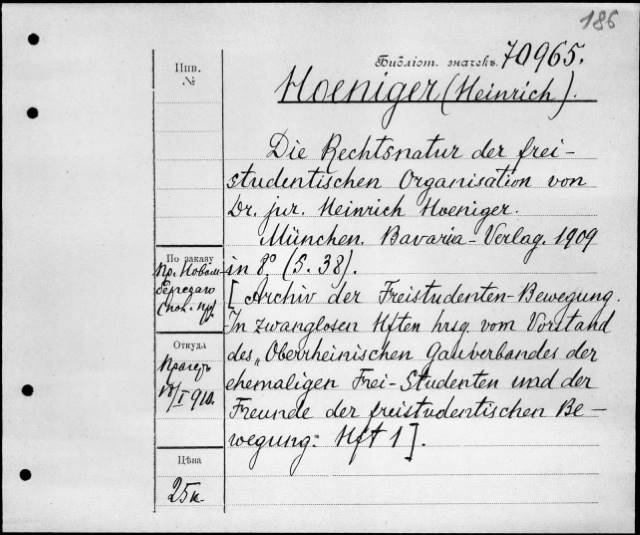 186
Инв.
№
Библіот. значекъ 70965.
Hoeniger (Heinrich).
Die Rechtsnatur der frei-
studentischen Organisation von
Dr. jur. Heinrich Hoeniger.
München. Bavaria-Verlag. 1909
in 8º (S. 38).
[Archiv der Freistudenten-Bewegung.
In zwanglosen Hften hrsg. vom Vorstand
des „Oberrheinischen Gauverbandes der
ehemaligen Frei-Studenten und der
Freunde der freistudentischen Be-
wegung: Hft 1].
По заказу
Пр. Новом-
бергскаго
Откуда
I 910.
Цѣна
25к.